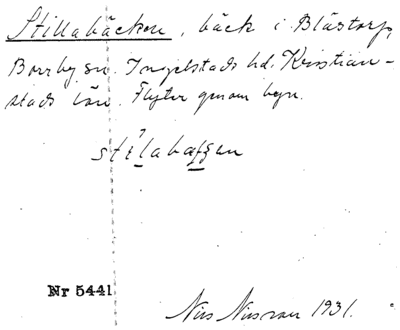 Stillabäcken, bäck i Blästorp,
Borrby sn. Ingelstads hd. Kristian-
stads län. Flyter genom byn.
Nr 5441
Nils Nilsson 1931.